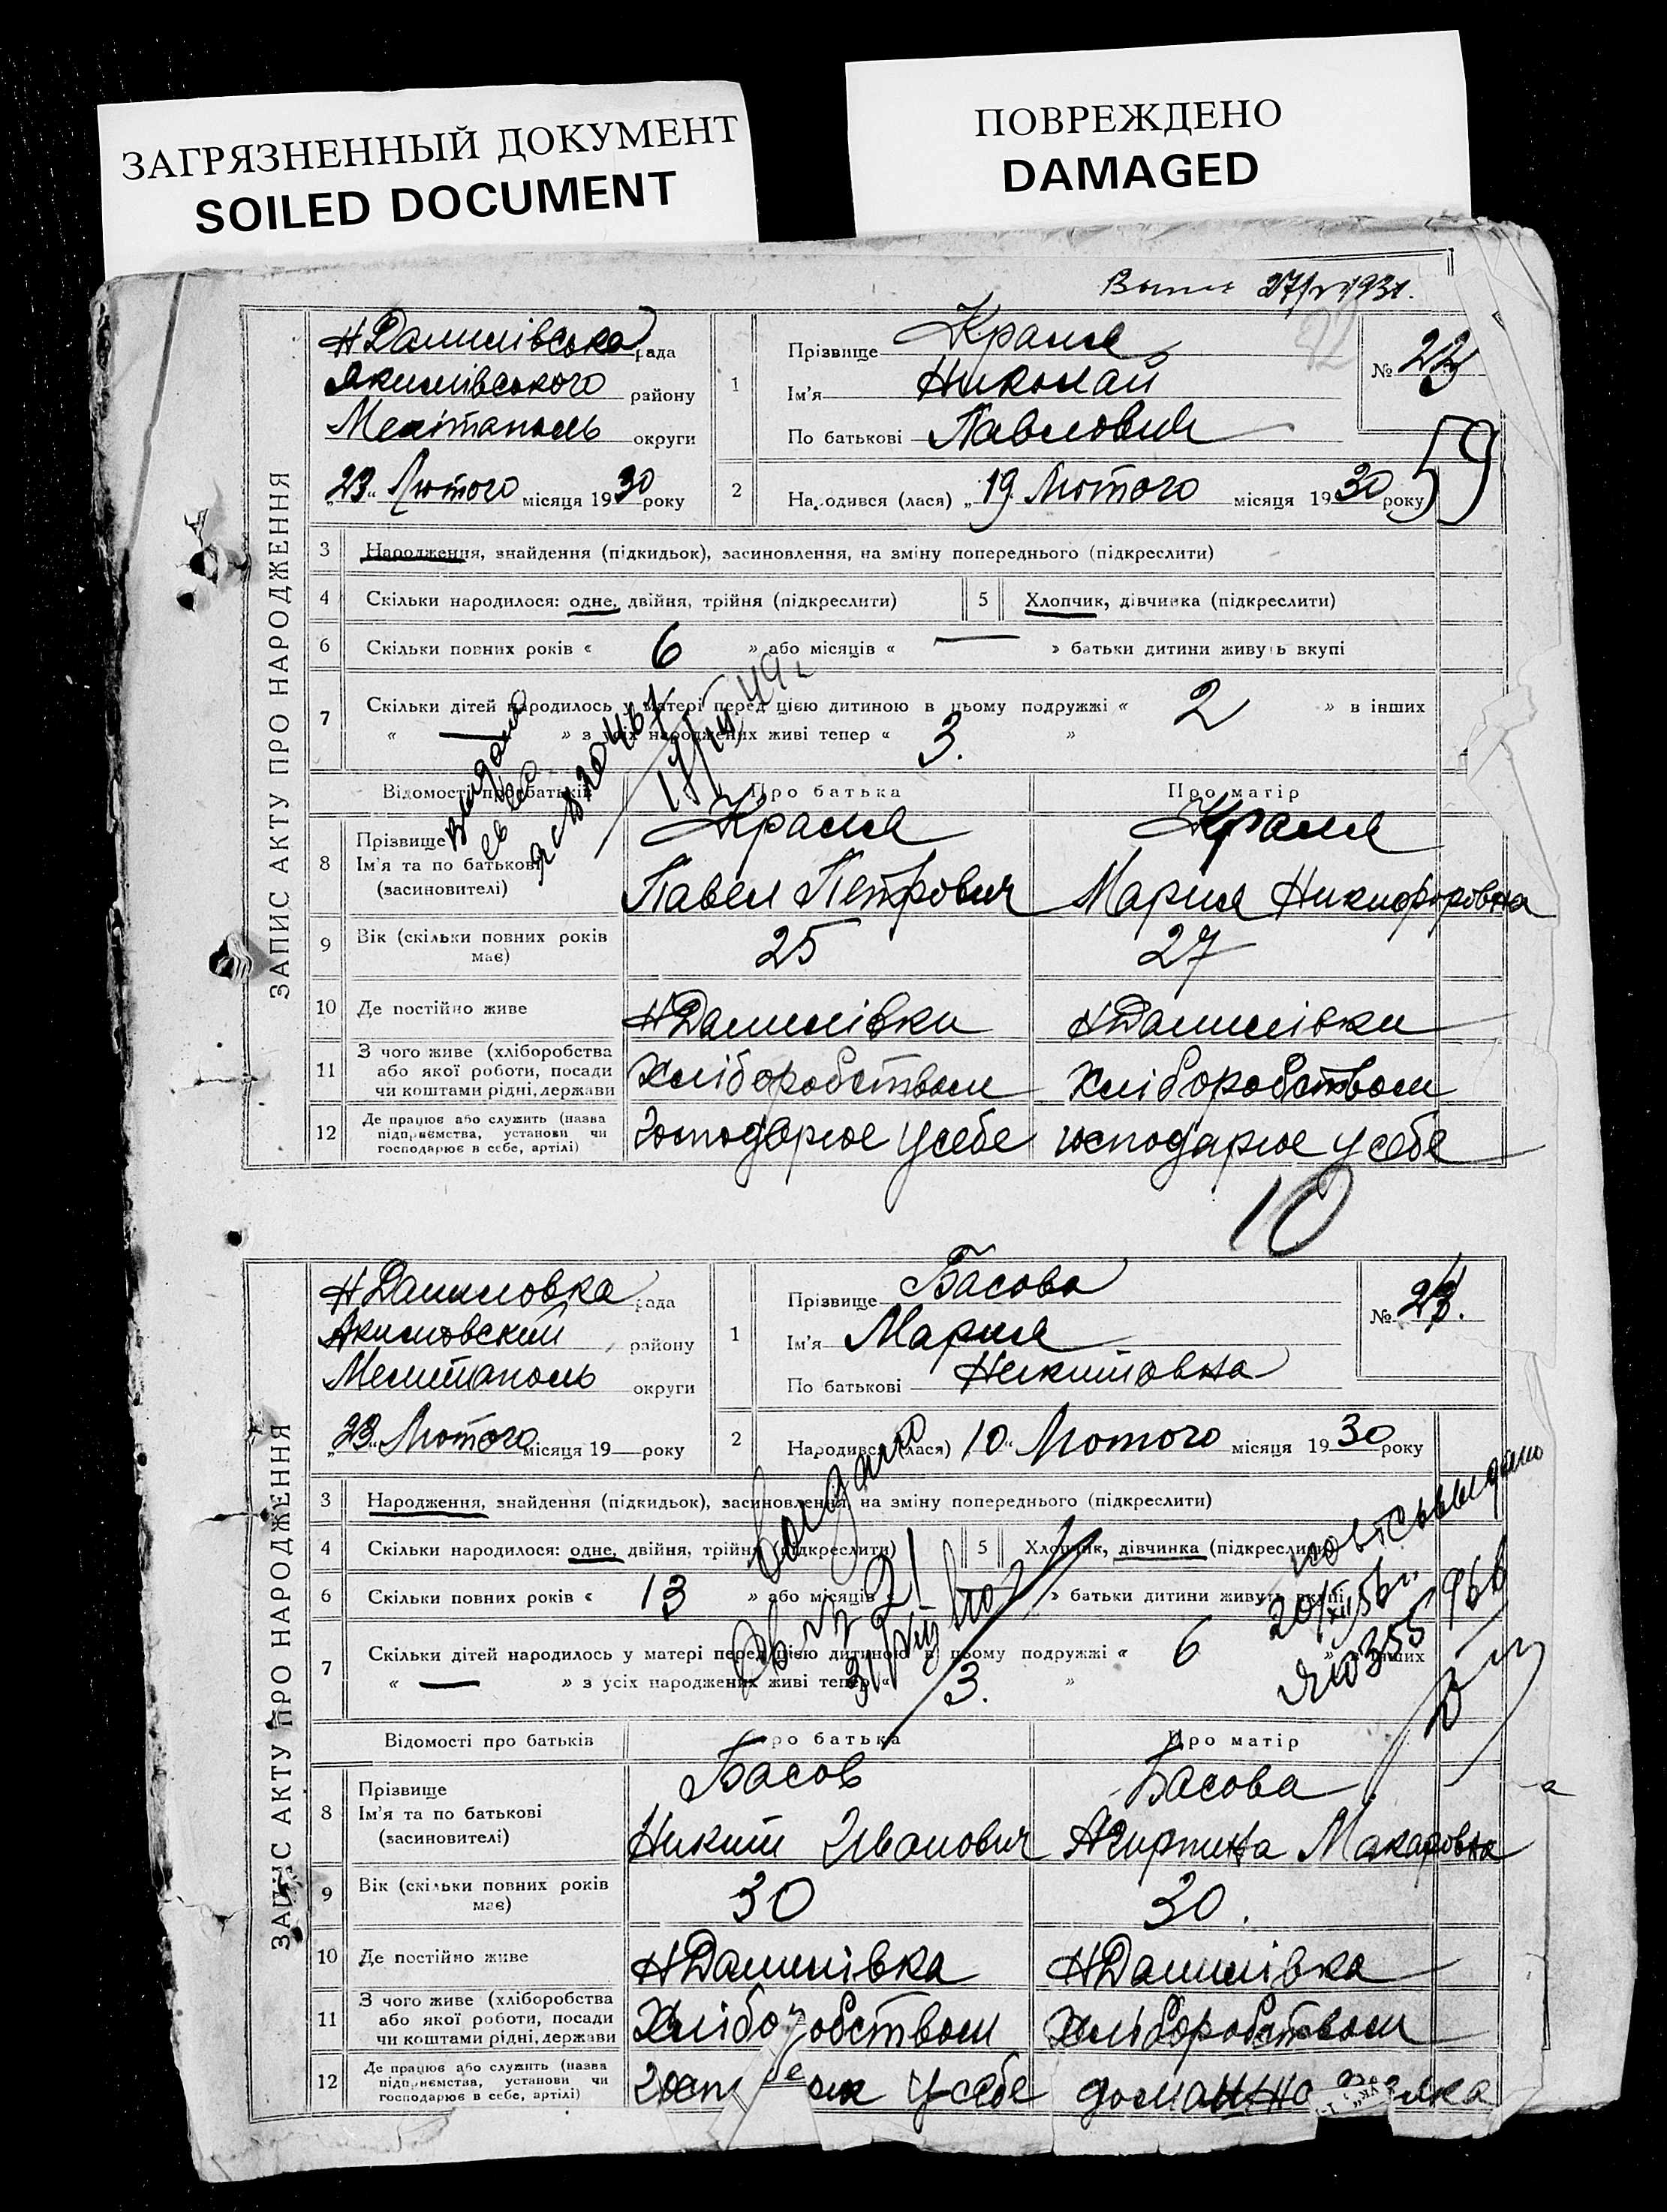 ЗАГРЯЗНЕННЫЙ ДОКУМЕНТ
SOILED DOCUMENT
ПОВРЕЖДЕНО
DAMAGED
ЗАПИС АКТУ ПРО НАРОДЖЕННЯ
Н Данилівська рада
Якимівського району
Мелітополь округи
„23“ Лютого місяця 1930 року
1
Прізвище
Ім'я Николай
По батькові Павлович
№
59
2
Народився (лася) „19 Лютого місяця 1930 року
3 Народження, знайдення (підкидьок), засиновлення, на зміну попереднього (підкреслити)
4 Скільки народилося: одне, двійня, трійня (підкреслити)
5 Хлопчик, дівчинка (підкреслити)
6 Скільки повних років « 6 » або місяців « — » батьки дитини живуть вкупі
7 Скільки дітей народилось у матері перед цією дитиною в цьому подружжі « 2 » в інших
« — » з усіх народжених живі тепер « 3. »
Відомості про батьків
Про батька
Про матір
8 Прізвище
Ім'я та по батькові
(засиновителі)
Павел Петрович
Мария Никифоровна
9 Вік (скільки повних років
має)
25
27
10 Де постійно живе
Н Данилівки
Н Данилівки
11 З чого живе (хліборобства
або якої роботи, посади
чи коштами рідні, держави
Хліборобством
Хліборобством
12 Де працює або служить (назва
підприємства, установи чи
господарює в себе, артілі)
Господарює у себе
господарює у себе
10
ЗАПИС АКТУ ПРО НАРОДЖЕННЯ
Н Даниловка рада
Акимовский району
Мелитополь округи
„23“ Лютого місяця 19— року
1
Прізвище Басова
Ім'я Мария
По батькові Никитовна
№
2
Народився (лася) 10“ Лютого місяця 1930 року
3 Народження, знайдення (підкидьок), засиновлення, на зміну попереднього (підкреслити)
4 Скільки народилося: одне, двійня, трійня (підкреслити)
5 Хлопчик, дівчинка (підкреслити)
6 Скільки повних років « 13 » або місяців « » батьки дитини живуть вкупі
7 Скільки дітей народилось у матері перед цією дитиною в цьому подружжі « 6 » в інших
« — » з усіх народжених живі тепер « 3. »
Відомості про батьків
Про батька
Про матір
8 Прізвище
Ім'я та по батькові
(засиновителі)
Басов
Никит Иванович
Басова
Агирпина Макаровна
9 Вік (скільки повних років
має)
30
30.
10 Де постійно живе
Н Данилівка
Н Данилівка
11 З чого живе (хліборобства
або якої роботи, посади
чи коштами рідні, держави
Хліборобством
Хліборобством
12 Де працює або служить (назва
підприємства, установи чи
господарює в себе, артілі)
у себе